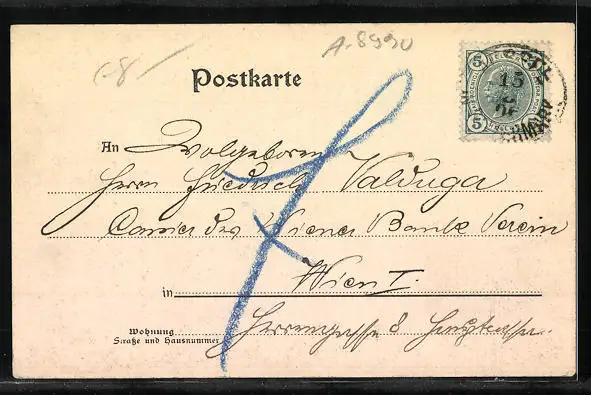 A-8990
Postkarte
5 5
15
An Wolgeboren
Herrn Friedrich Valduga
Cassier des Wiener Bank Verein
in Wien I.
Wohnung
Straße und Hausnummer
Herrengasse 8 Hauptcassa.